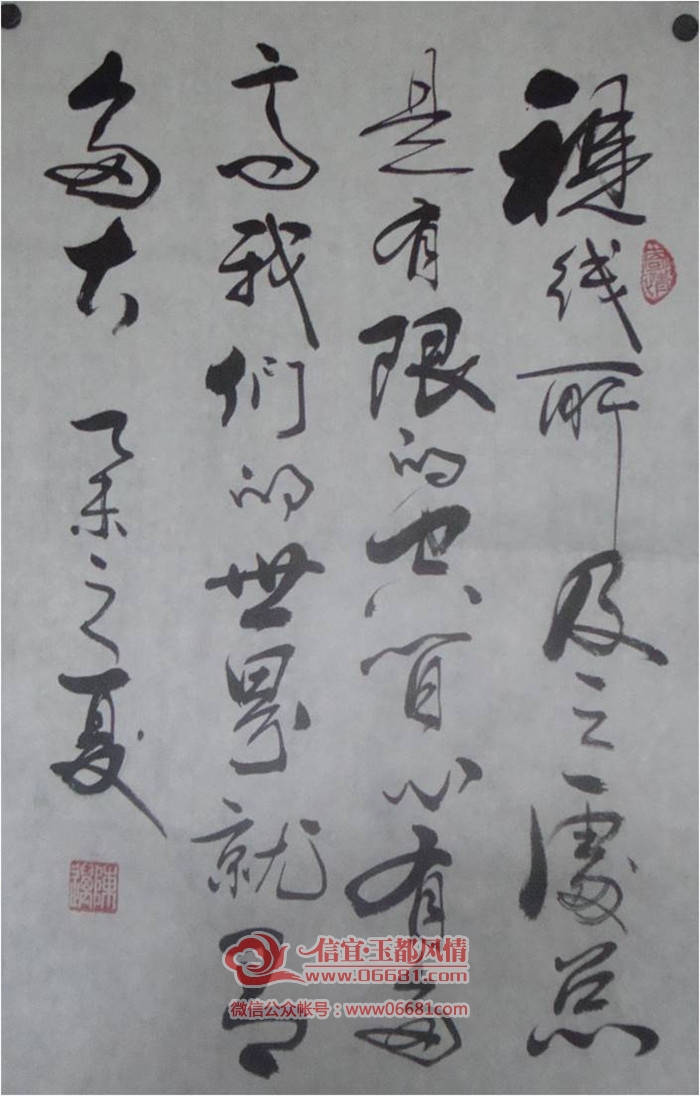 視线所及之處总
是有限的空间心有多
高我们的世界就有
多大 乙未之夏
信宜·玉都风情
www.06681.com
微信公众帐号：www.06681.com